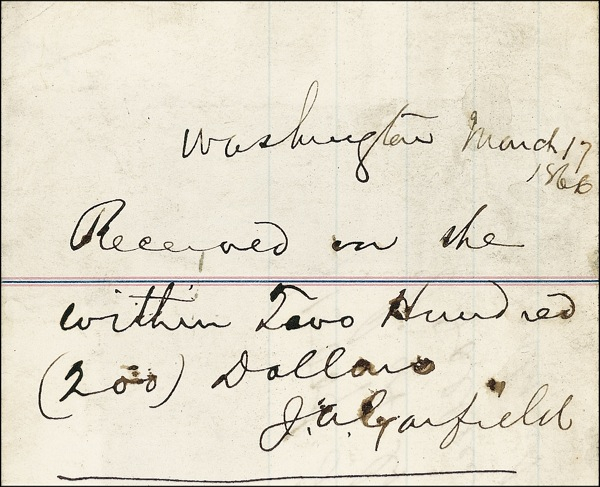 Washington March 17
1866
Received on the
within Two Hundred
(200) Dollars
J. A. Garfield